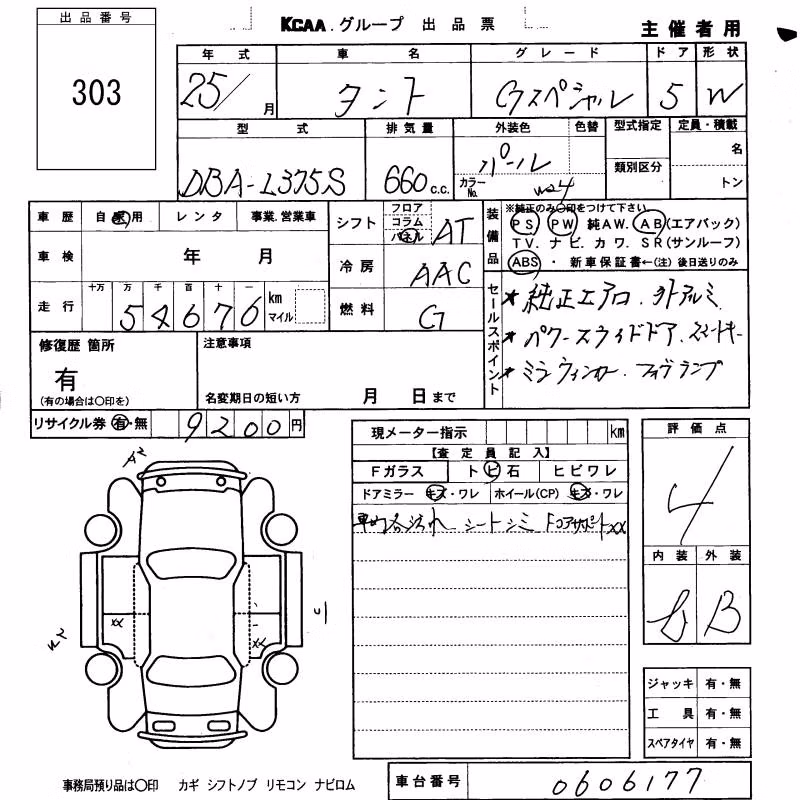 出品番号
303
KCAA.グループ 出品票
主催者用
年式 車名 グレード ドア 形状
25/月 タント Gスペシャル 5 W
型式 排気量 外装色 色替 型式指定 定員・積載
DBA-L375S 660 c.c. パール
カラーNo. W24
類別区分
名
トン
車歴 自家用 レンタ 事業.営業車
車検 年 月
走行 十万 万 千 百 十 一
54676 km マイル
シフト フロア コラム パネル AT
冷房 AAC
燃料 G
装備品
※純正のみ〇印をつけて下さい
PS PW 純AW. AB(エアバック)
TV. ナビ. カワ. SR(サンルーフ)
ABS ・ 新車保証書←(注)後日送りのみ
セールスポイント
★純正エアロ.外アルミ
★パワースライドドア.スマートキー
★ミラーウィンカー.フォグランプ
修復歴 箇所
有
(有の場合は〇印を)
注意事項
名変期日の短い方 月 日まで
リサイクル券 有・無 9200円
現メーター指示 km
【査定員記入】
Fガラス トビ石 ヒビワレ
ドアミラー キズ・ワレ ホイール(CP) キズ・ワレ
シートシミ
XX
評価点
4
内装 外装
B
A2
XX
XX
ジャッキ 有・無
工具 有・無
スペアタイヤ 有・無
事務局預り品は〇印 カギ シフトノブ リモコン ナビロム
車台番号 0606177